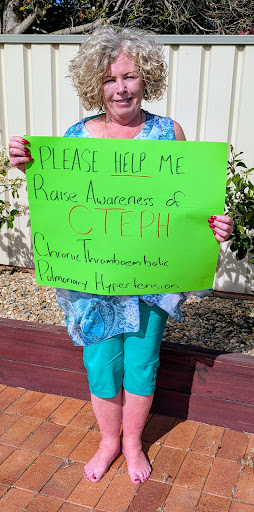 PLEASE HELP ME
Raise Awareness of
CTEPH
Chronic Thromboembolic
Pulmonary Hypertension